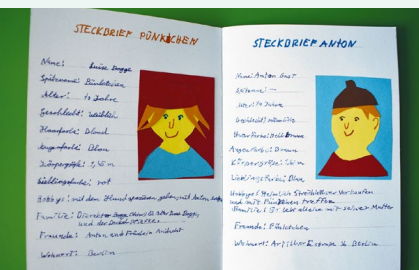 STECKBRIEF PÜNKTCHEN
Name: Luise Pogge
Spitzname: Pünktchen
Alter: 10 Jahre
Geschlecht: weiblich
Haarfarbe: blond
Augenfarbe: Blau
Körpergröße: 1,45 m
Lieblingsfarbe: rot
Hobbys: mit dem Hund spazieren gehen, mit Anton
Familie: Direktor Pogge
und der Dackel Piefke
Freunde: Anton und Fräulein Andacht
Wohnort: Berlin
STECKBRIEF ANTON
Name: Anton Gast
Spitzname: —
Alter: 10 Jahre
Geschlecht: männlich
Haarfarbe: Braun
Augenfarbe: Braun
Körpergröße:
Lieblingsfarbe: Blau
Hobbys: Heimlich Streichhölzer Verkaufen
und mit Pünktchen treffen
Familie: Er lebt alleine mit seiner Mutter
Freunde: Pünktchen
Wohnort: Artilleriestrasse Berlin